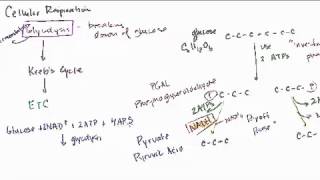 Cellular Respiration
Glycolysis - breaking
down of glucose
Kreb's Cycle
ETC
Glucose + 2NAD+ + 2ATP + 4ADP
↓ glycolysis
glucose
C6H12O6
C-C-C-C-C-C
use
2 ATPs
PGAL
Phosphoglyceraldehyde
C-C-C
C-C-C
2ATPs
NADH
Payoff
Phase
Pyruvate
Pyruvic Acid
C-C-C
C-C-C